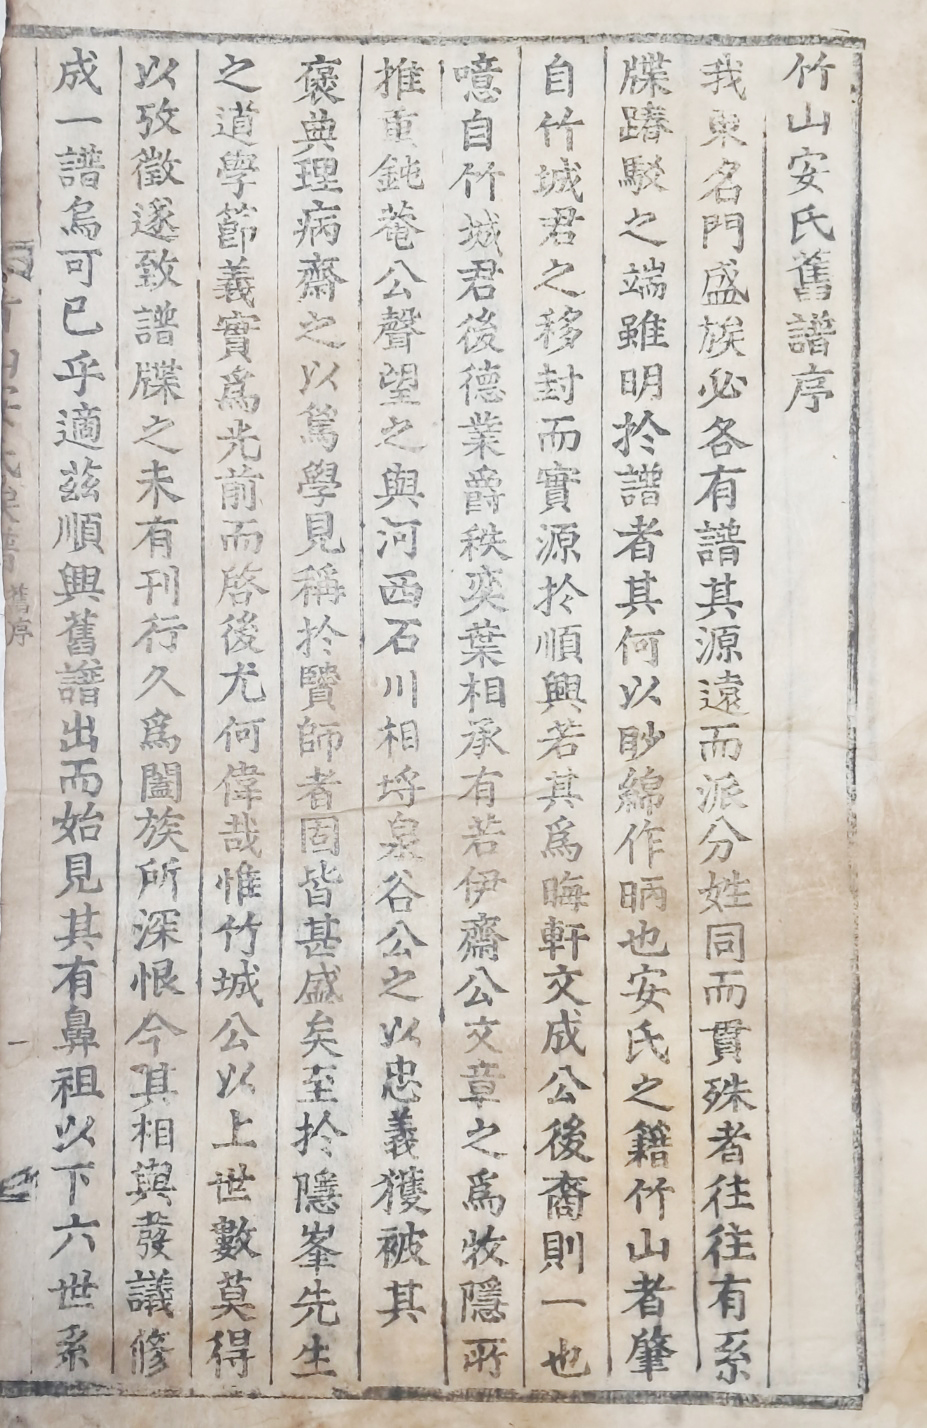 竹山安氏舊譜序
我東名門盛族必各有譜其源遠而派分姓同而貫殊者往往有系
牒踳駁之端雖明於譜者其何以眇綿作昞也安氏之籍竹山者肇
自竹城君之移封而實源於順興若其爲晦軒文成公後裔則一也
噫自竹城君後德業爵秩奕葉相承有若伊齋公文章之爲牧隱所
推重鈍菴公聲望之與河西石川相埒泉谷公之以忠義獲被其
褒典理病齋之以篤學見稱於賢師者固皆甚盛矣至於隱峯先生
之道學節義實爲光前而啓後尤何偉哉惟竹城公以上世數莫得
以攷徵遂致譜牒之未有刊行久爲闔族所深恨今其相與發議修
成一譜烏可已乎適茲順興舊譜出而始見其有鼻祖以下六世系
舊序
一